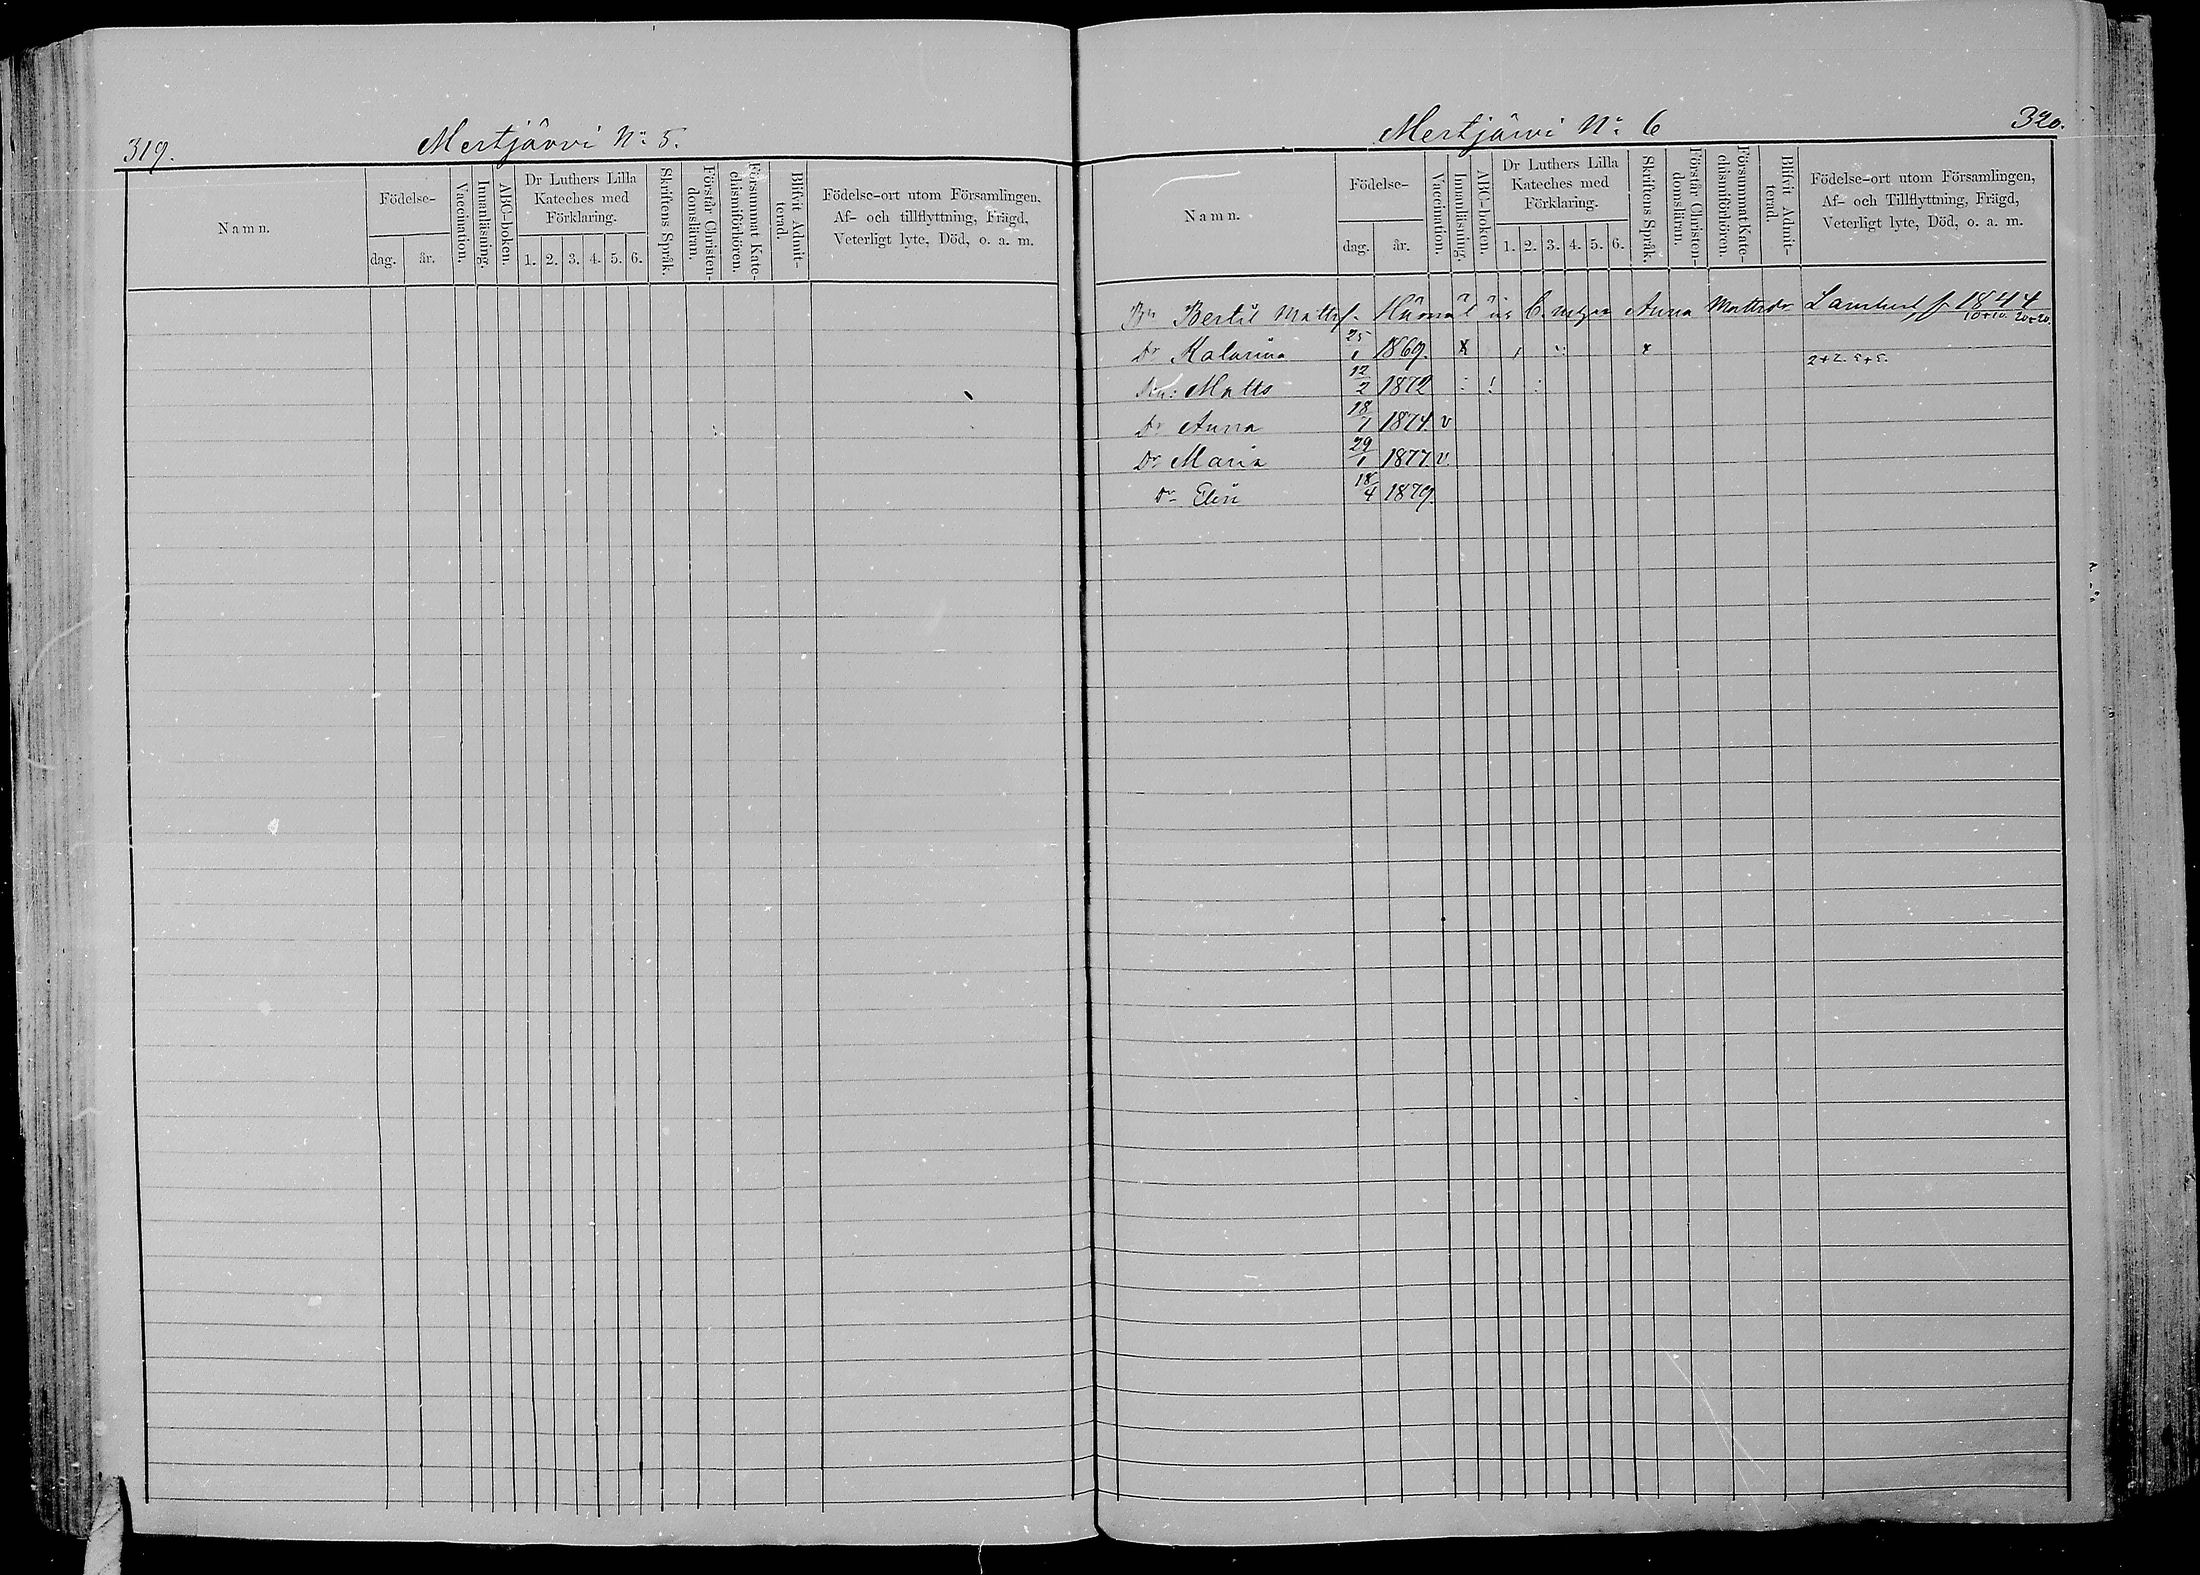 319.
Mertjärvi No 5.
Namn.
Födelse-
dag.
år.
Vaccination.
Innanläsning.
ABC-boken.
Dr Luthers Lilla
Kateches med
Förklaring.
1. 2. 3. 4. 5. 6.
Skriftens Språk.
Förstår Christen-
domsläran.
Försummat Kate-
chismiförhören.
Blifvit Admit-
terad.
Födelse-ort utom Församlingen,
Af- och tillflyttning, Frägd,
Veterligt lyte, Död, o. a. m.
Mertjärvi No 6
320.
Namn.
Födelse-
dag.
år.
Vaccination.
Innanläsning.
ABC-boken.
Dr Luthers Lilla
Kateches med
Förklaring.
1. 2. 3. 4. 5. 6.
Skriftens Språk.
Förstår Christen-
domsläran.
Försummat Kate-
chismiförhören.
Blifvit Admit-
terad.
Födelse-ort utom Församlingen,
Af- och Tillflyttning, Frägd,
Veterligt lyte, Död, o. a. m.
Bn Bertil Matts. Anna Mattsdr
Dr Katarina 25/1 1869. x x 2+2. 5+5.
Matts 12/2 1872
Dr Anna 18/1 1874 v
Dr Maria 29/1 1877 v.
Dr Elin 18/4 1879.